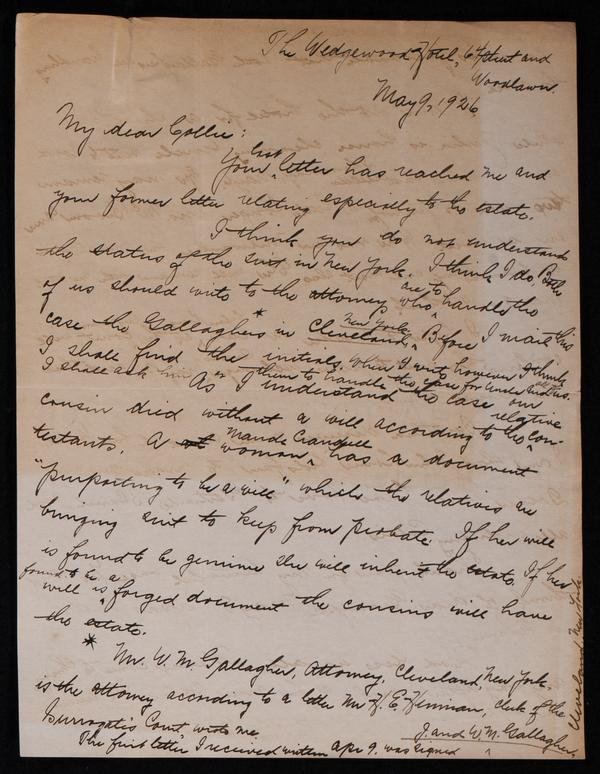 The Wedgewood Hotel, 64 Street and
Woodlawn.
May 9, 1926.
My dear Collie:
Your last letter has reached me and
your former letter relating especially to the estate.
I think you do not understand
the status of the suit in New York. I think I do. Both
of us should write to the attorneys who are to handle the
case the Gallaghers * in Cleveland, New York. Before I mail this
I shall find the initials. When I write however I think
I shall ask him them to handle the case for us.
As I understand the case our
cousin died without a will according to the relative con-
testants. A woman Maude Crandell has a document
"purporting to be a will" which the relatives are
bringing suit to keep from probate. If her will
is found to be genuine she will inherit the estate. If her
will is found to be a forged document the cousins will have
the estate.
* Mr. W. M. Gallagher, Attorney, Cleveland, New York.
is the attorney according to a letter Mr H. E. clerk of the
Surrogate's Court, wrote me.
The first letter I received written Apr 9. was signed J. and W. M. Gallagher,
Cleveland, New York.